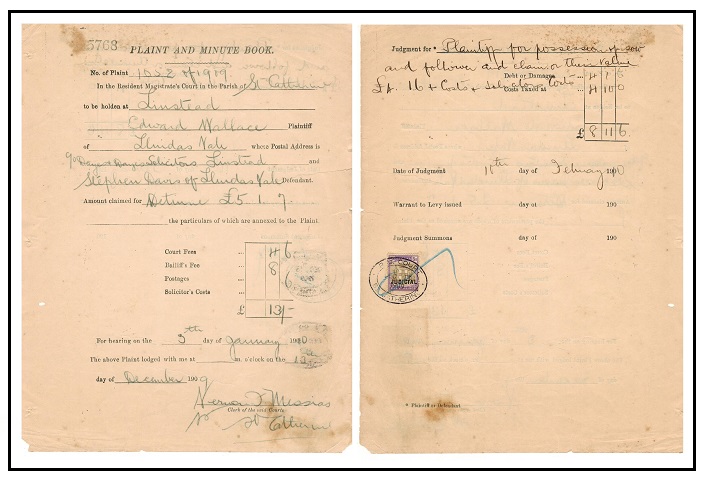 5768
PLAINT AND MINUTE BOOK.
No. of Plaint 1522 of 1919
In the Resident Magistrate's Court in the Parish of St Catherine
to be holden at Linstead
Edward Wallace Plaintiff
of Lluidas Vale whose Postal Address is
Solicitors Linstead and
Stephen Davis of Lluidas Vale Defendant.
Amount claimed for Detinue £5. 1. 7
the particulars of which are annexed to the Plaint.
Court Fees ... 4 6
Bailiff's Fee ... 8
Postages ...
Solicitor's Costs ...
£ 13/-
For hearing on the 5th day of January 19
The above Plaint lodged with me at m. o'clock on the
day of December 190
Vernon
Clerk of the said Court.
St Catherine
Judgment for * Plaintiff for possession of sow
and follower and claim or their value
Debt or Damages ... 4 1 6
£4. 16 + Costs + Solicitors Costs
Costs Taxed at ... 4 10 0
£ 8 11 6
Date of Judgment 10th day of February 190
Warrant to Levy issued day of 190
Judgment Summons day of 190
R.M. COURT
ST. CATHERINE
JUDICIAL
* Plaintiff or Defendant